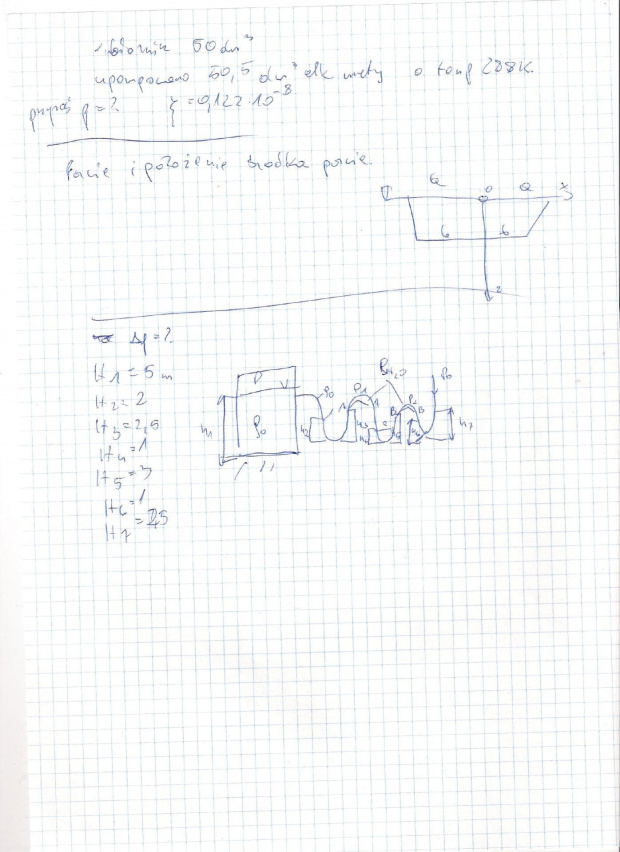 zbiornik 50 dm³
wpompowano 50,5 dm³ alk metyl o temp 288K.
przyrost p = ? ξ = 0,122·10⁻⁸
Parcie i położenie środka parcia.
a o a x
b b
z
Δp = ?
H1 = 5 m
H2 = 2
H3 = 2,5
H4 = 1
H5 = 3
H6 = 1
H7 = 2,5
p V
h1 ρ0 ρ0 h2 A ρ1 A ρH2O B ρ2 B ρ0 h7